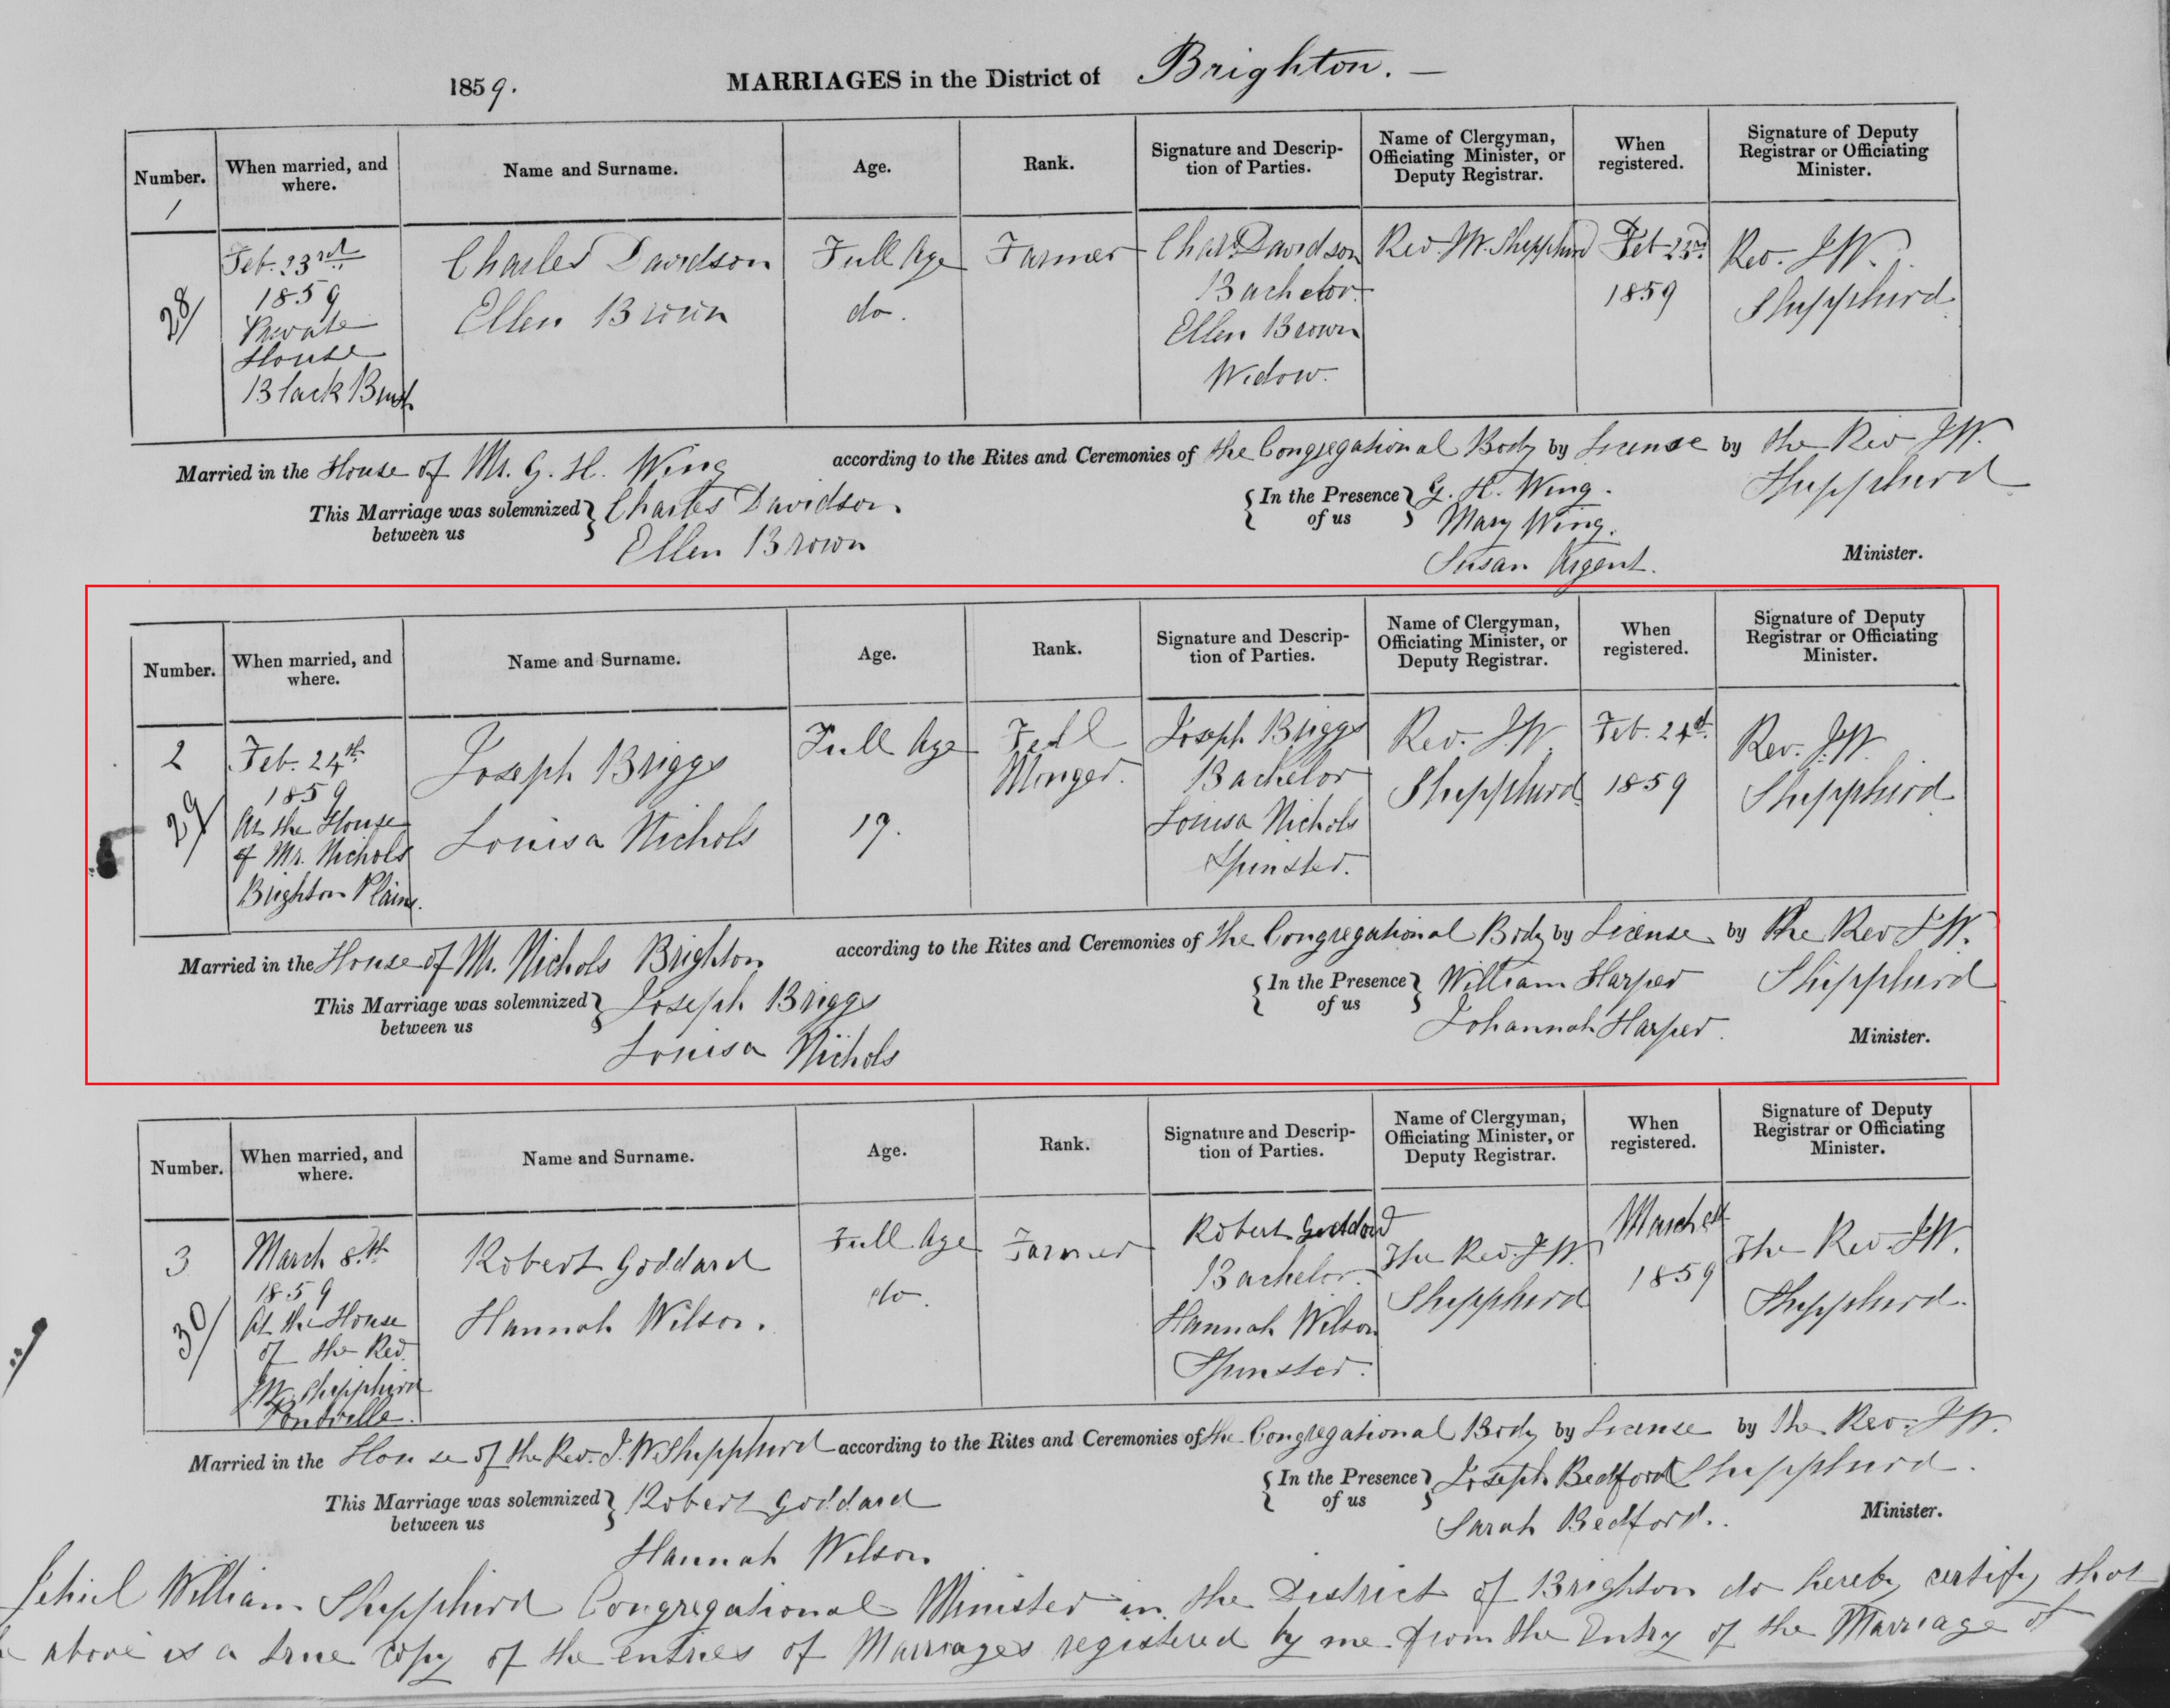 1859. MARRIAGES in the District of Brighton. —
Number. When married, and where. Name and Surname. Age. Rank. Signature and Description of Parties. Name of Clergyman, Officiating Minister, or Deputy Registrar. When registered. Signature of Deputy Registrar or Officiating Minister.
1
28/
Feb. 23rd
1859
Private
House
Black Brush
Charles Davidson
Ellen Brown
Full Age
do.
Farmer
Chas Davidson
Bachelor.
Ellen Brown
Widow.
Rev. J.W. Shepphird
Feb 23rd
1859
Rev. J.W.
Shepphird
Married in the House of Mr. G. H. Wing according to the Rites and Ceremonies of the Congregational Body by License by the Rev J.W.
Shepphird
This Marriage was solemnized between us
Charles Davidson
Ellen Brown
In the Presence of us
G. H. Wing.
Mary Wing.
Susan Argent.
Minister.
Number. When married, and where. Name and Surname. Age. Rank. Signature and Description of Parties. Name of Clergyman, Officiating Minister, or Deputy Registrar. When registered. Signature of Deputy Registrar or Officiating Minister.
2
29/
Feb. 24th
1859
At the House
of Mr. Nichols
Brighton Plains.
Joseph Briggs
Louisa Nichols
Full Age
19.
Fell
Monger.
Joseph Briggs
Bachelor
Louisa Nichols
Spinster.
Rev. J.W.
Shepphird
Feb. 24th
1859
Rev. J.W.
Shepphird
Married in the House of Mr. Nichols Brighton according to the Rites and Ceremonies of the Congregational Body by License by the Rev J.W.
Shepphird
This Marriage was solemnized between us
Joseph Briggs
Louisa Nichols
In the Presence of us
William Harper
Johannah Harper.
Minister.
Number. When married, and where. Name and Surname. Age. Rank. Signature and Description of Parties. Name of Clergyman, Officiating Minister, or Deputy Registrar. When registered. Signature of Deputy Registrar or Officiating Minister.
3
30/
March 8th
1859
At the House
of the Rev.
J.W. Shepphird
Pontville.
Robert Goddard
Hannah Wilson.
Full Age
do.
Farmer
Robert Goddard
Bachelor.
Hannah Wilson
Spinster.
The Rev. J.W.
Shepphird
March 8th
1859
The Rev. J.W.
Shepphird.
Married in the House of the Rev. J.W. Shepphird according to the Rites and Ceremonies of the Congregational Body by License by the Rev. J.W.
Shepphird.
This Marriage was solemnized between us
Robert Goddard
Hannah Wilson
In the Presence of us
Joseph Bedford
Sarah Bedford.
Minister.
Jehiel William Shepphird Congregational Minister in the District of Brighton do hereby certify that
above is a true copy of the entries of Marriages registered by me from the Entry of the Marriage of